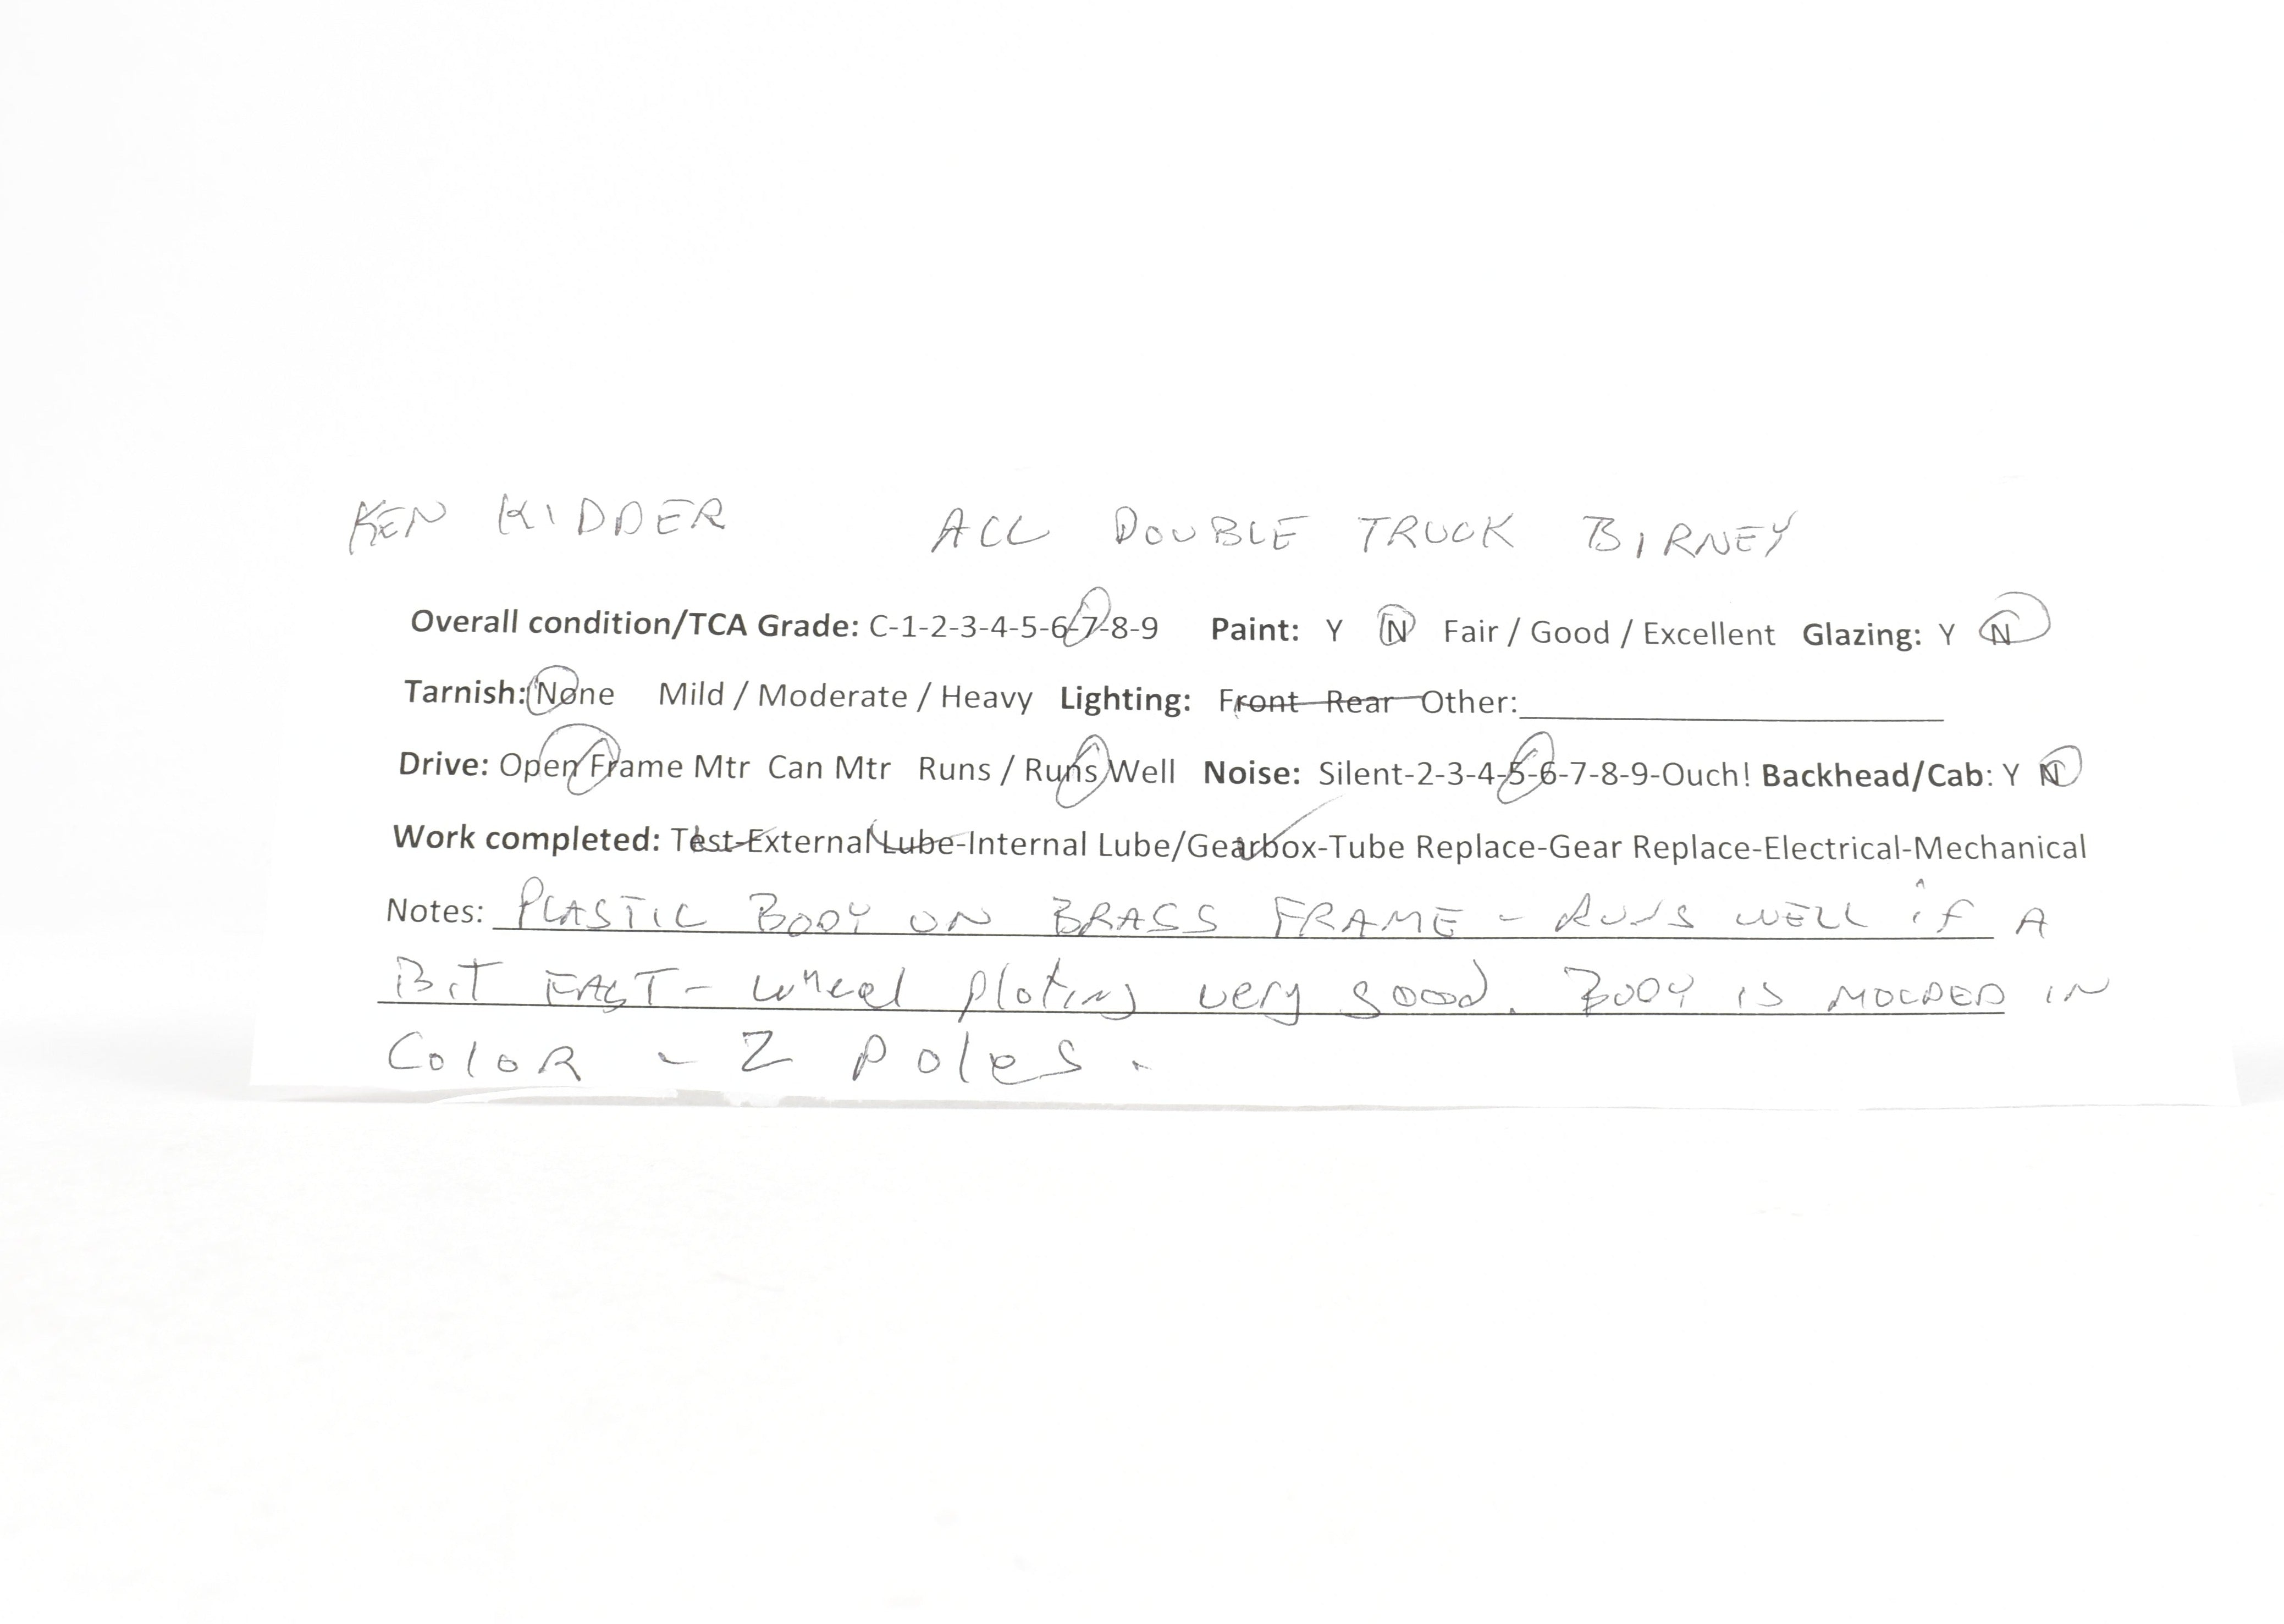 KEN KIDDER ACL DOUBLE TRUCK BIRNEY
Overall condition/TCA Grade: C-1-2-3-4-5-6-7-8-9 Paint: Y N Fair / Good / Excellent Glazing: Y N
Tarnish: None Mild / Moderate / Heavy Lighting: Front Rear Other:
Drive: Open Frame Mtr Can Mtr Runs / Runs Well Noise: Silent-2-3-4-5-6-7-8-9-Ouch! Backhead/Cab: Y N
Work completed: Test-External Lube-Internal Lube/Gearbox-Tube Replace-Gear Replace-Electrical-Mechanical
Notes: PLASTIC BODY ON BRASS FRAME - RUNS WELL if A
BiT FAST - wheel plating very good. BODY IS MOLDED IN
COlOR - 2 poles.